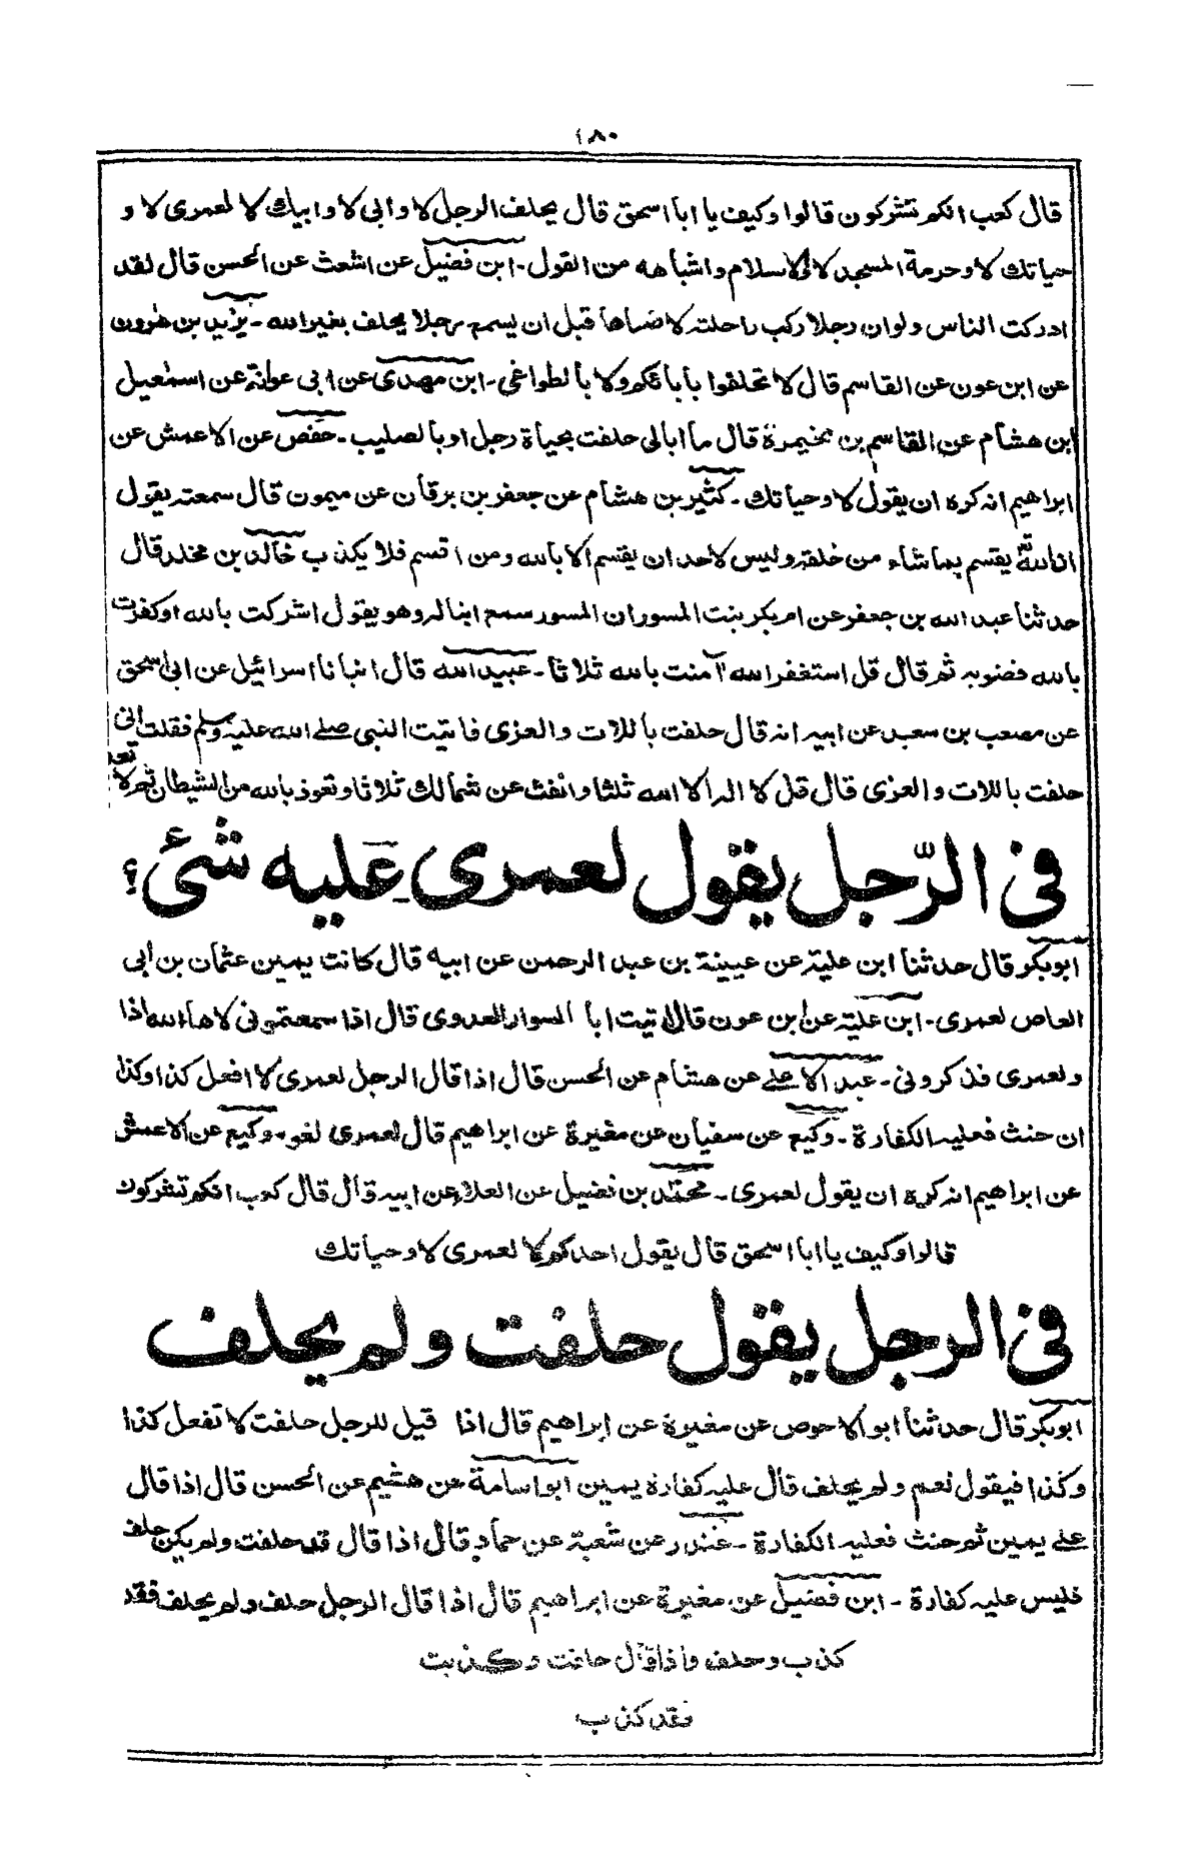 ١٨٠
قال كعب انكم تشركون قالوا وكيف يا ابا اسحق قال يحلف الرجل لا وابي لا وابيك لا لعمرى لا و
حياتك لا وحرمة المسجد لا لا والاسلام واشباهه من القول - ابن فضيل عن اشعث عن الحسن قال لقد
ادركت الناس ولو ان رجلا ركب راحلته لا ضاها قبل ان يسمع رجلا يحلف بغير الله - يزيد بن هرون
عن ابن عون عن القاسم قال لا تحلفوا بأبائكم ولا بالطواغى - ابن مهدى عن ابى عوانة عن اسمعيل
ابن هشام عن القاسم بن مخيمرة قال ما ابالى حلفت بحياة رجل او بالصليب - حفص عن الاعمش عن
ابراهيم انه كره ان يقول لا وحياتك - كثير بن هشام عن جعفر بن برقان عن ميمون قال سمعته يقول
ان الله يقسم بما شاء من خلقه وليس لاحد ان يقسم الا بالله ومن اقسم فلا يكذب خالد بن مخلد قال
حدثنا عبد الله بن جعفر عن ام بكر بنت المسور ان المسور سمع ابنا له وهو يقول اشركت بالله او كفرت
بالله فضربه ثم قال قل استغفر الله آمنت بالله ثلاثا - عبيد الله قال انبانا اسرائيل عن ابى اسحق
عن مصعب بن سعد عن ابيه انه قال حلفت باللات والعزى فاتيت النبى صلے الله عليه وسلم فقلت انى
حلفت باللات والعزى قال قل لا اله الا الله ثلثا وانفث عن شمالك ثلاثا وتعوذ بالله من الشيطان ثم لا تعد
فى الرّجل يقول لعمرى عَليه شئ؟
ابوبكر قال حدثنا ابن علية عن عيينة بن عبد الرحمن عن ابيه قال كانت يمين عثمان بن ابى
العاص لعمرى - ابن علية عن ابن عون قال اتيت ابا السوار العدوى قال اذا سمعتمونى لاها الله اذا
ولعمرى فذكرونى - عبد الاعلے عن هشام عن الحسن قال اذا قال الرجل لعمرى لا افعل كذا وكذا
ان حنث فعليه الكفارة - وكيع عن سفيان عن مغيرة عن ابراهيم قال لعمرى لغو - وكيع عن الاعمش
عن ابراهيم انه كره ان يقول لعمرى - محمد بن فضيل عن العلاء عن ابيه قال قال كعب انكم تشركون
قالوا وكيف يا ابا اسحق قال يقول احدكم لا لعمرى لا وحياتك
فى الرجل يقول حلفت ولم يحلف
ابوبكر قال حدثنا ابو الاحوص عن مغيرة عن ابراهيم قال اذا قيل للرجل حلفت لا تفعل كذا
وكذا فيقول نعم ولم يحلف قال عليه كفارة يمين ابو اسامة عن هشيم عن الحسن قال اذا قال
علے يمين ثم حنث فعليه الكفارة - غندر عن شعبة عن حماد قال اذا قال قد حلفت ولم يكن حلف
فليس عليه كفارة - ابن فضيل عن مغيرة عن ابراهيم قال اذا قال الرجل حلف ولم يحلف فقد
كذب وحلف واذا قال حلفت وكذبت
فقد كذب